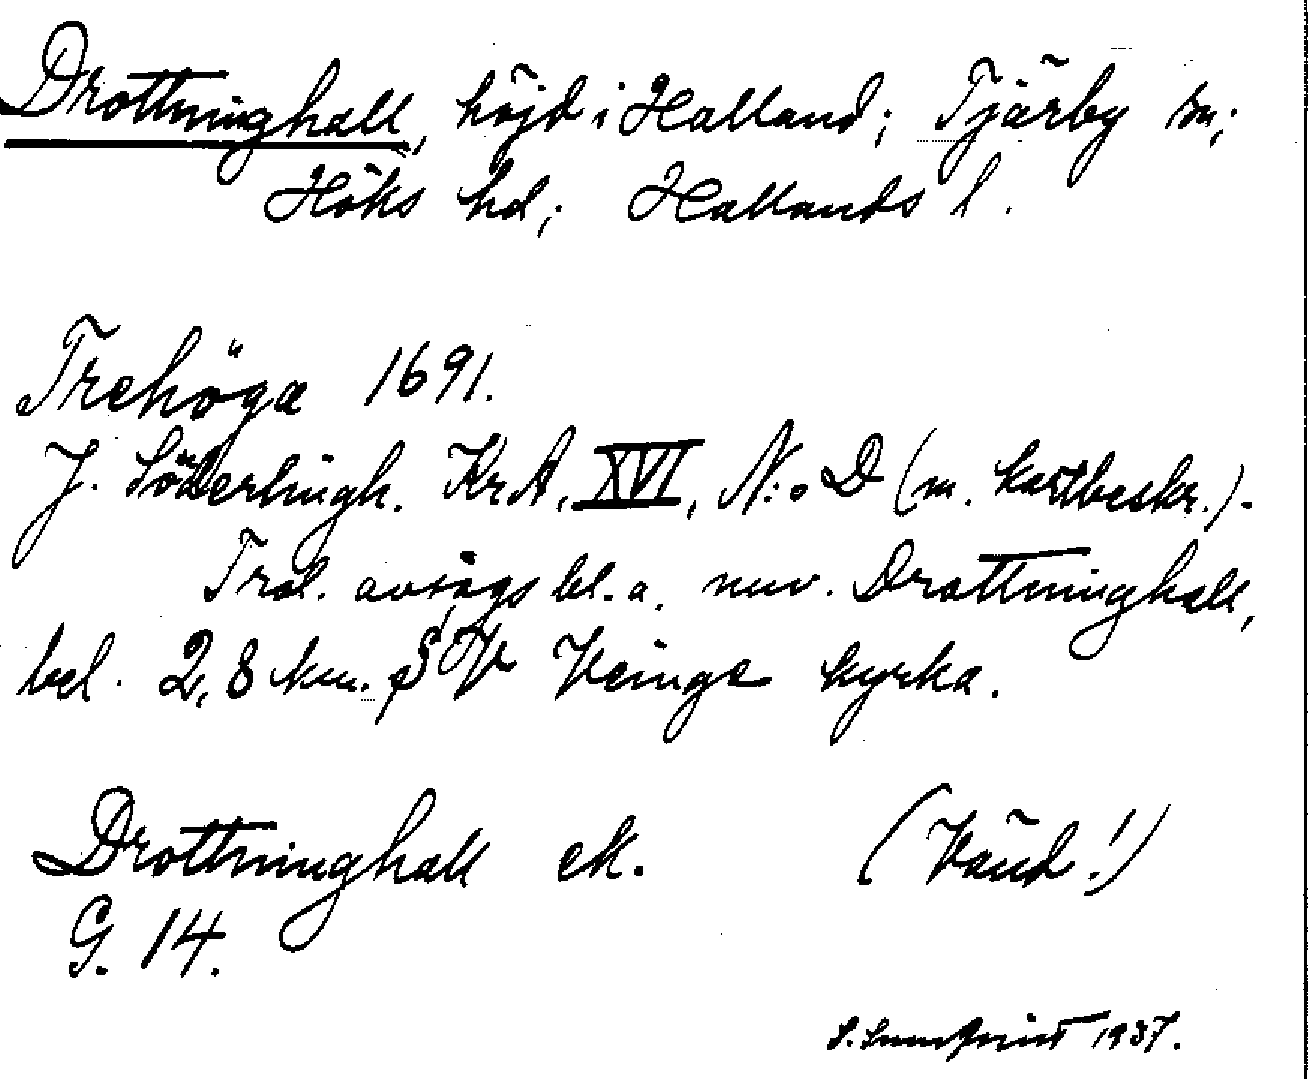 Drottninghall, höjd i Halland; Tjärby sn;
Höks hd; Hallands l.
Trehöga 1691.
J. Söderlingh. KrA, XVI, N:o D (m. kartbeskr.).
Trol. avsågs bl.a. nuv. Drottninghall,
bel. 2,8 km. SV Veinge kyrka.
Drottninghall ek. (Vänd!)
G. 14.
1937.